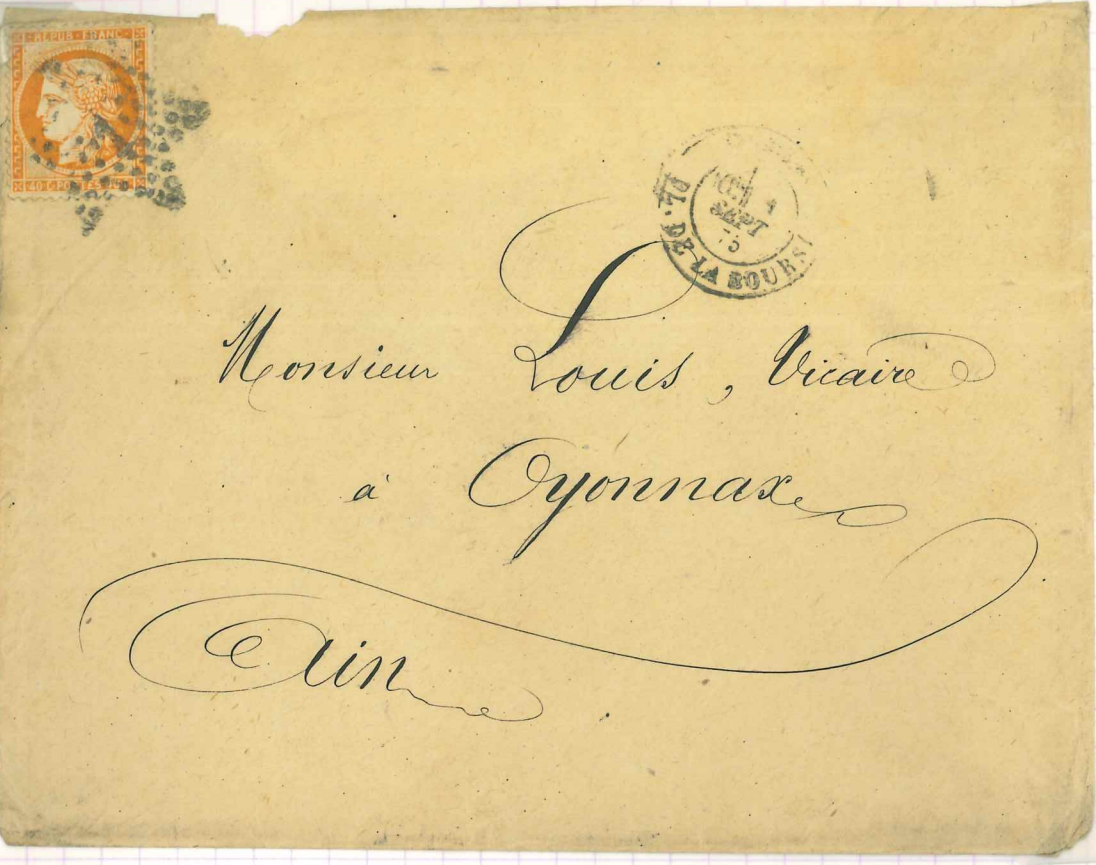 REPUB · FRANC
40 · C · POSTES · 40
1
SEPT
75
PL. DE LA BOURSE
Monsieur Louis, Vicaire
à Oyonnax
Ain